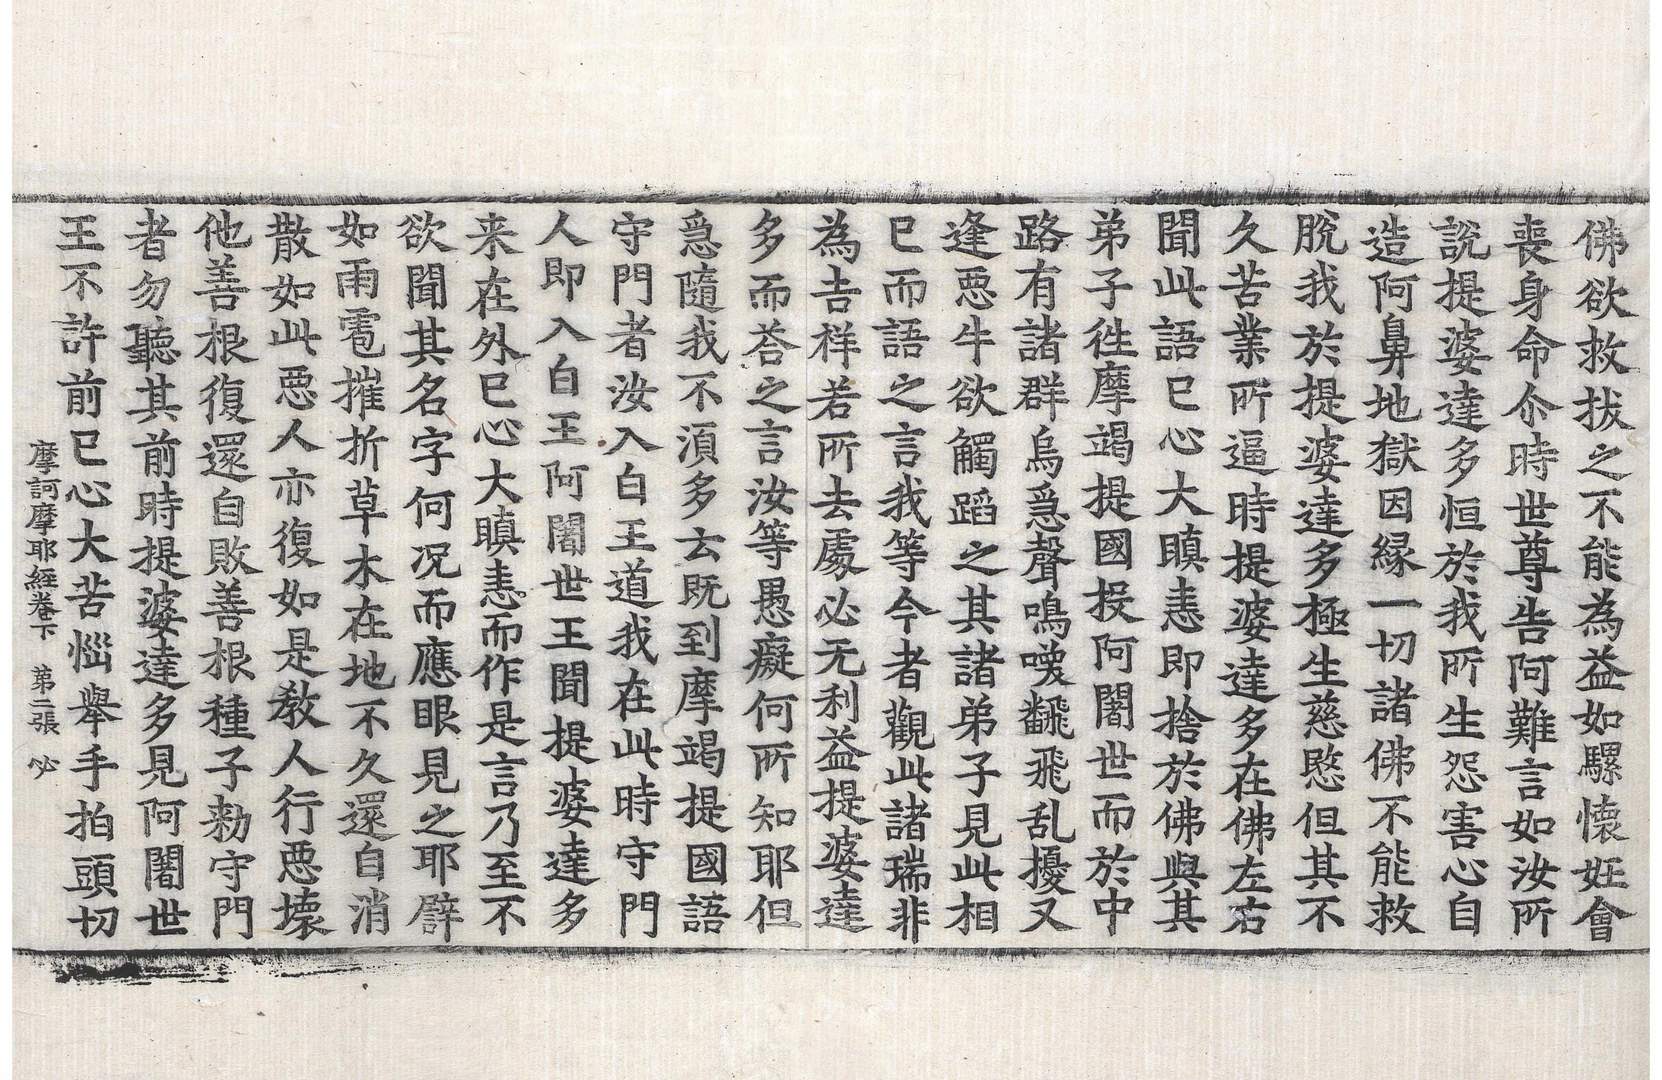 佛欲救拔之不能為益如騾懷妊會
喪身命尒時世尊告阿難言如汝所
說提婆達多恒於我所生怨害心自
造阿鼻地獄因縁一切諸佛不能救
脫我於提婆達多極生慈愍但其不
久苦業所逼時提婆達多在佛左右
聞此語已心大瞋恚即捨於佛與其
弟子徃摩竭提國投阿闍世而於中
路有諸群烏爲聲鳴喚翻飛乱擾又
逢惡牛欲觸蹈之其諸弟子見此相
已而語之言我等今者觀此諸瑞非
為吉祥若所去處必无利益提婆達
多而荅之言汝等愚癡何所知耶但
爲隨我不須多云既到摩竭提國語
守門者汝入白王道我在此時守門
人即入白王阿闍世王聞提婆達多
来在外已心大瞋恚而作是言乃至不
欲聞其名字何况而應眼見之耶譬
如雨雹摧折草木在地不久還自消
散如此惡人亦復如是教人行惡壞
他善根復還自敗善根種子勑守門
者勿聽其前時提婆達多見阿闍世
王不許前已心大苦惱舉手拍頭切
摩訶摩耶經卷下　第二張　必